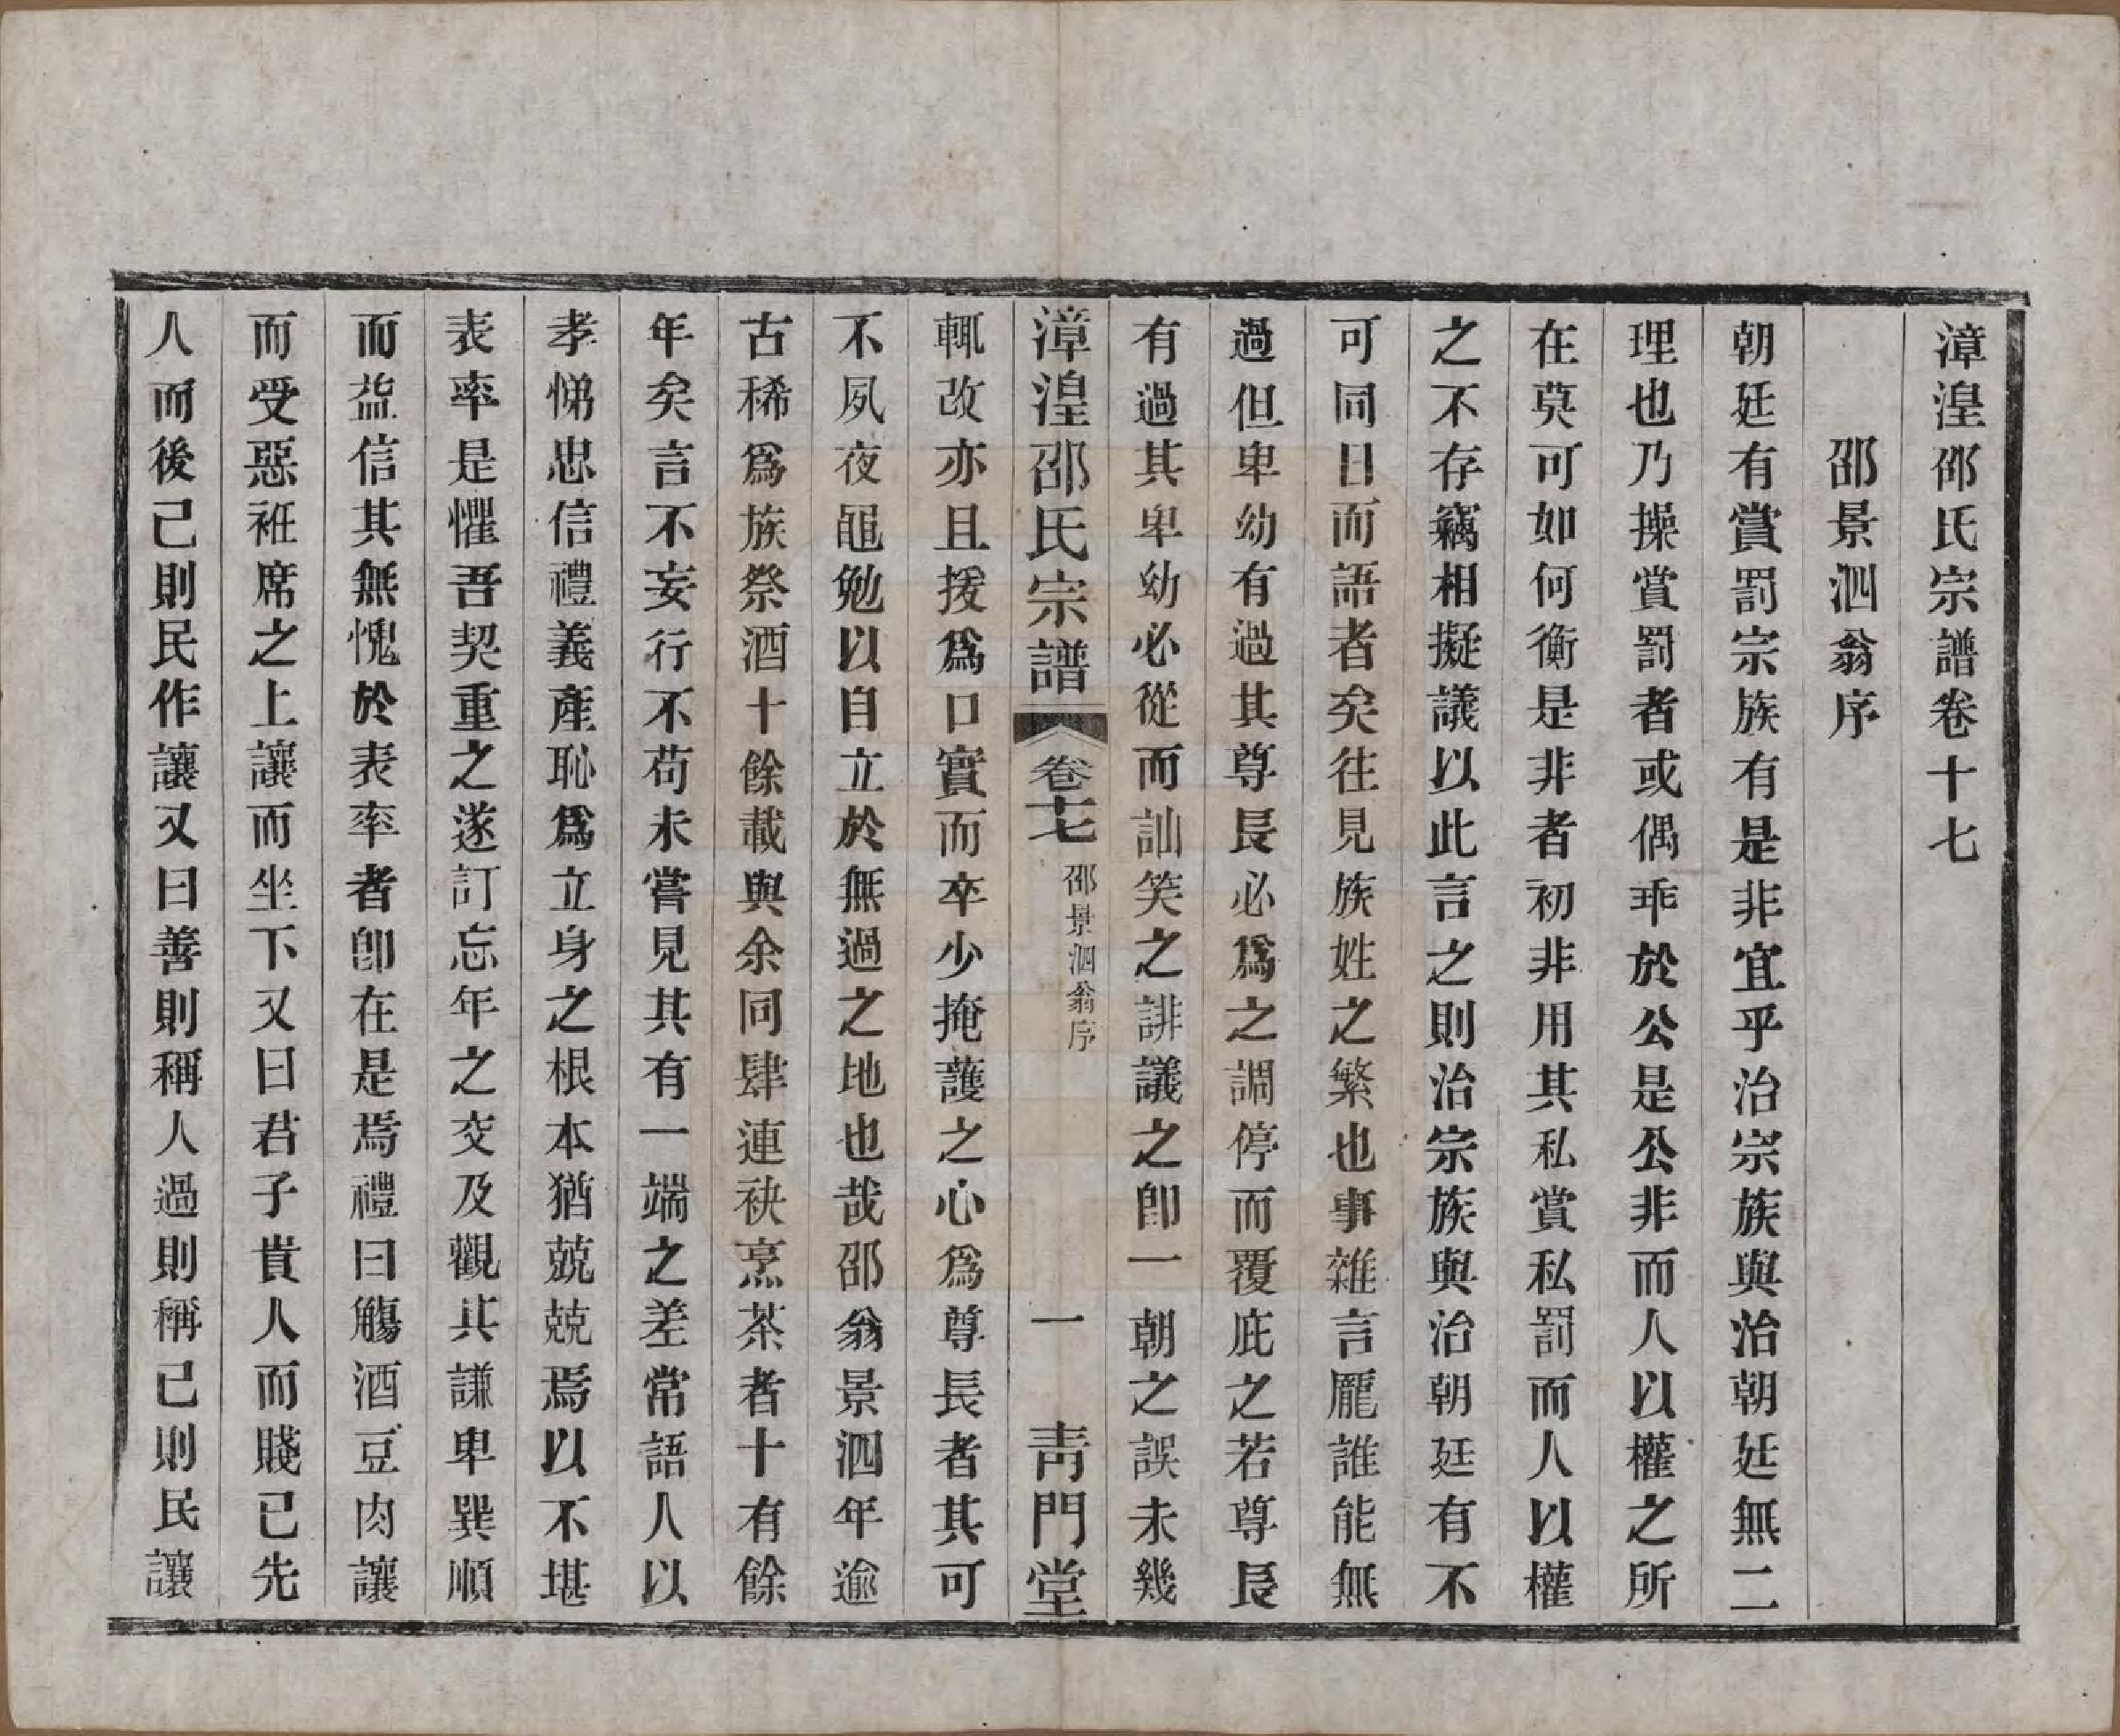 漳湟邵氏宗譜卷十七
邵景泗翁序
朝廷有賞罰宗族有是非宜乎治宗族與治朝廷無二
理也乃操賞罰者或偶乖於公是公非而人以權之所
在莫可如何衡是非者初非用其私賞私罰而人以權
之不存竊相擬議以此言之則治宗族與治朝廷有不
可同日而語者矣往見族姓之繁也事雜言厖誰能無
過但卑幼有過其尊長必爲之調停而覆庇之若尊長
有過其卑幼必從而訕笑之誹議之卽一朝之誤未幾
漳湟邵氏宗譜 卷十七 邵景泗翁序 一 靑門堂
輒改亦且援爲口實而卒少掩護之心爲尊長者其可
不夙夜黽勉以自立於無過之地也哉邵翁景泗年逾
古稀爲族祭酒十餘載與余同肆連袂烹茶者十有餘
年矣言不妄行不苟未嘗見其有一端之差常語人以
孝悌忠信禮義產恥爲立身之根本猶兢兢焉以不堪
表率是懼吾契重之遂訂忘年之交及觀其謙卑巽順
而益信其無愧於表率者卽在是焉禮曰觴酒豆肉讓
而受惡袵席之上讓而坐下又曰君子貴人而賤已先
人而後己則民作讓又曰善則稱人過則稱己則民讓